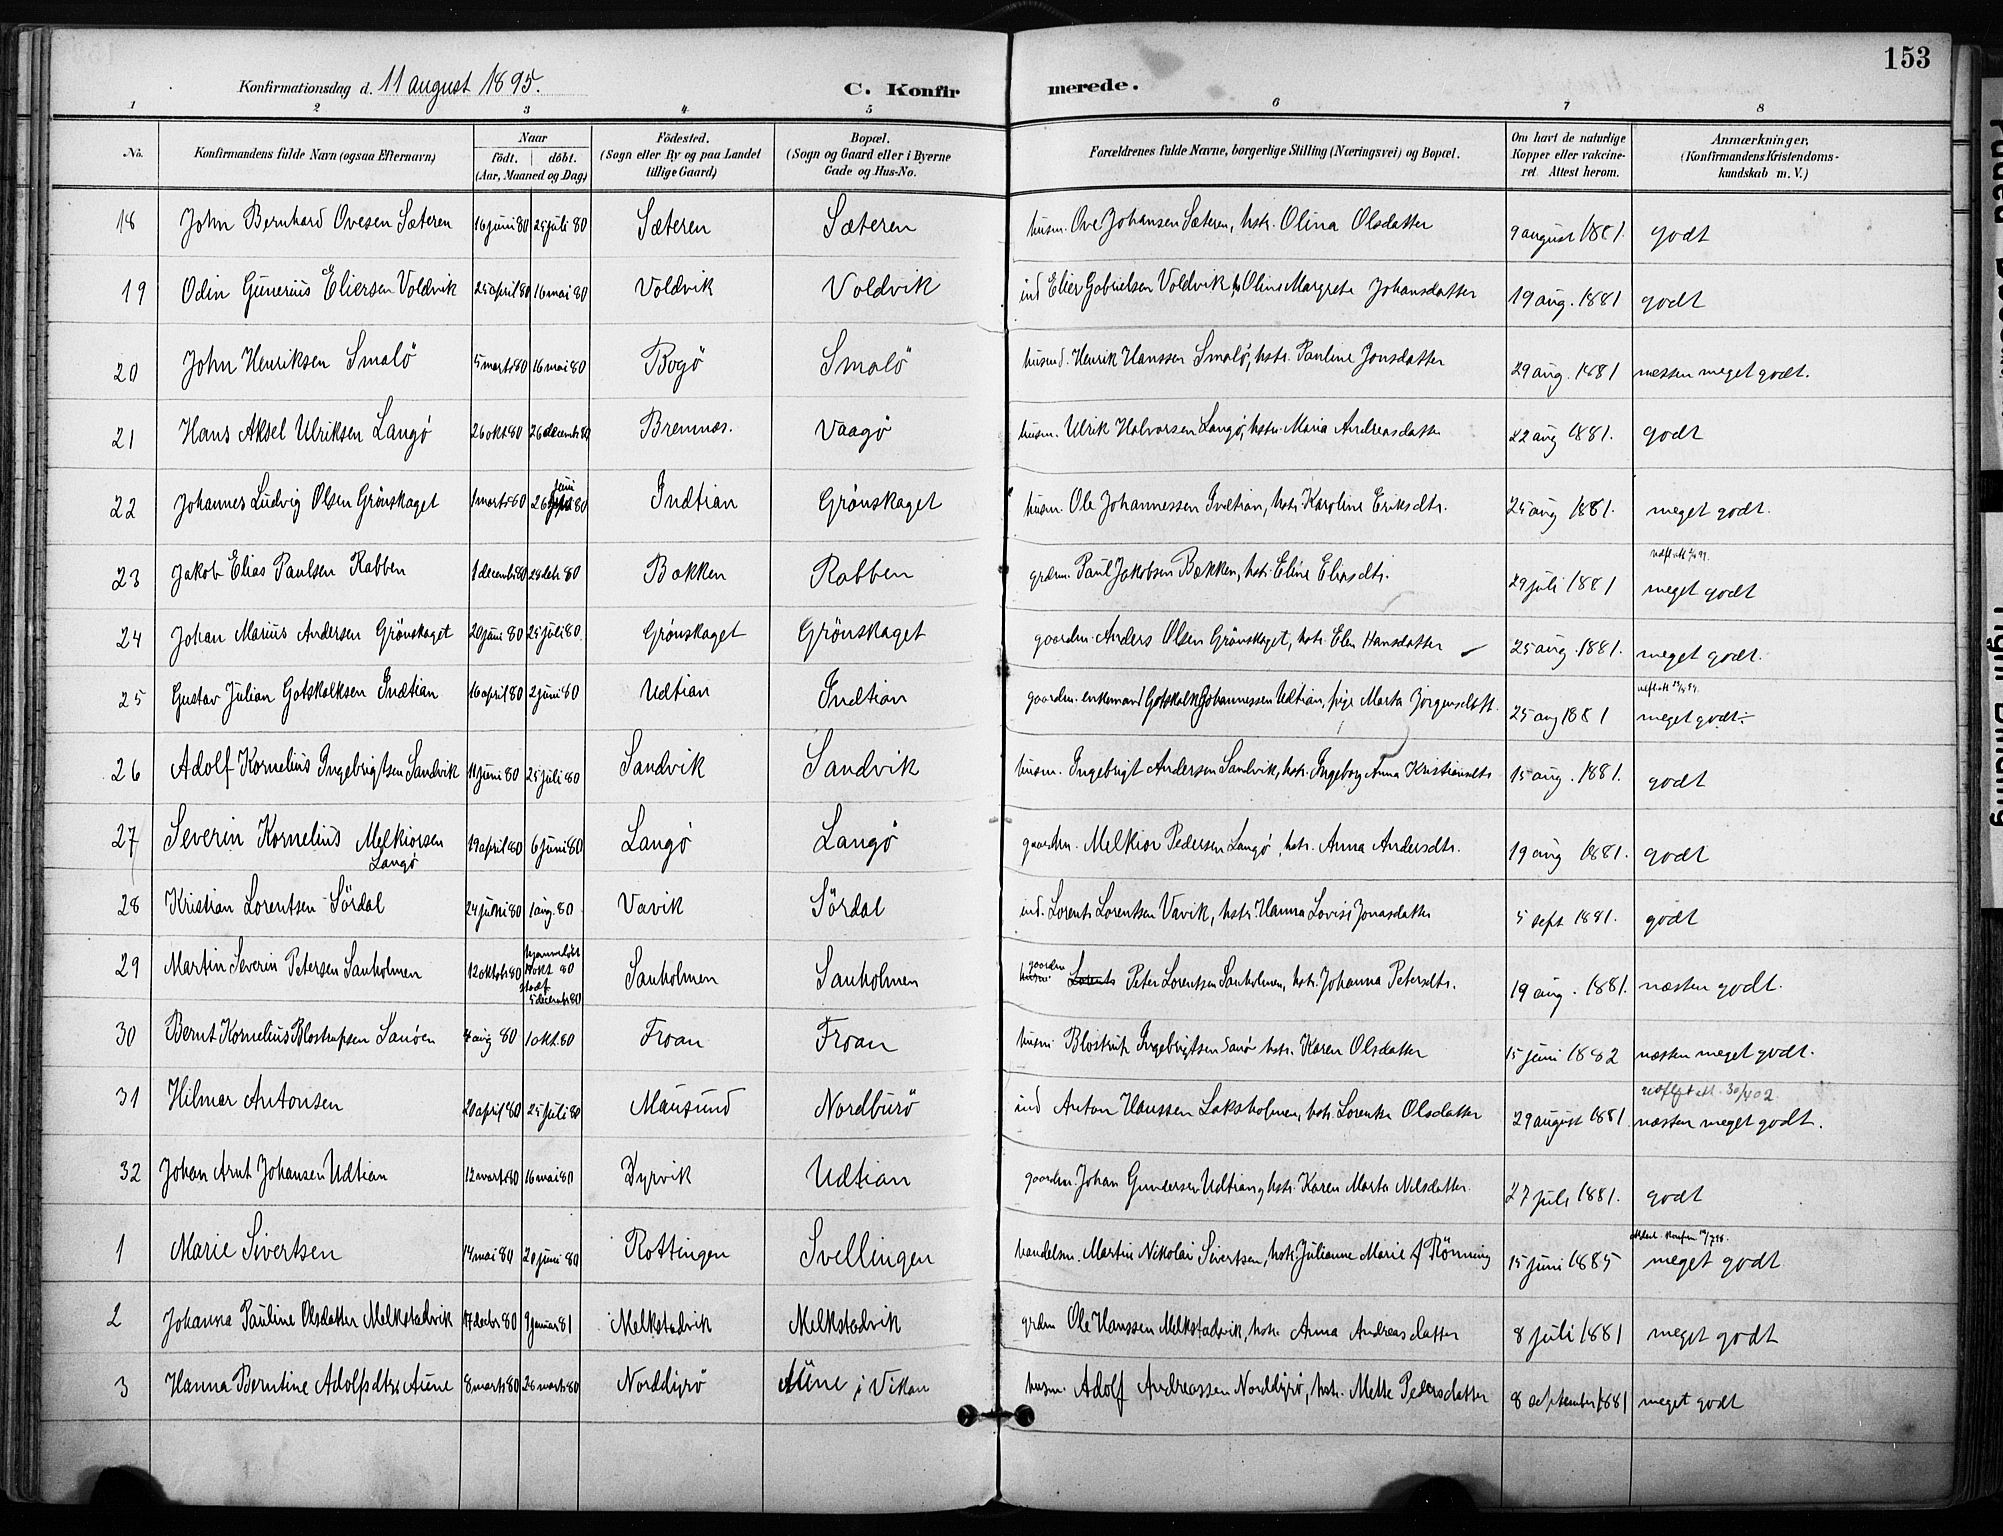 153
Konfirmationsdag d. 11 august 1895.
C. Konfirmerede.
1 2 3 4 5 6 7 8
No. Konfirmandens fulde Navn (ogsaa Efternavn) Naar födt. döbt. (Aar, Maaned og Dag) Födested. (Sogn eller By og paa Landet tillige Gaard) Bopæl. (Sogn og Gaard eller i Byerne Gade og Hus-No. Forældrenes fulde Navne, borgerlige Stilling (Næringsvei) og Bopæl. Om havt de naturlige Kopper eller vakcineret. Attest herom. Anmærkninger, (Konfirmandens Kristendomskundskab m. V.)
18 John Bernhard Ovesen Sæteren 16 juni 80 25 juli 80 Sæteren Sæteren husm. Ove Johansen Sæteren, hstr. Olina Olsdatter 9 august 1881. godt
19 Odin Gunerius Eliersen Voldvik 25 april 80 16 mai 80 Voldvik Voldvik ind Elier Gabrielsen Voldvik, Olina Margrete Johansdatter 19 aug. 1881 godt
20 John Henriksen Smalö 5 marts 80 16 mai 80 Bogö Smalö husmd. Henrik Hanssen Smalö, hstr. Pauline Jonsdatter 29 aug. 1881 næsten meget godt.
21 Hans Aksel Ulriksen Langö 26 okt 80 26 decembr 80 Bremnæs. Vaagö husm. Ulrik Halvorsen Langö, hstr. Maria Andreasdatter 22 aug 1881. godt
22 Johannes Ludvig Olsen Grönskaget 1 marts 80 26 juni 80 Indtian Grönskaget husm. Ole Johannessen Indtian, hstr. Karoline Eriksdtr. 25 aug 1881. meget godt.
23 Jakob Elias Paulsen Rabben 1 decemb 80 28 dcbr 80 Bakken Rabben grdm. Paul Jakobsen Bakken, hstr. Eline Eliasdtr. 29 juli 1881 meget godt
24 Johan Marius Andersen Grönskaget 20 juni 80 25 juli 80. Grönskaget Grönskaget gaardm. Anders Olsen Grönskaget, hstr. Elen Hansdatter 25 aug. 1881. meget godt.
25 Gustav Julian Gotskalksen Indtian 16 april 80 2 juni 80 Udtian Indtian gaardm. enkemand Gotskalk Johannessen Udtian, pige Marta Jörgensdatt. 25 aug 1881 meget godt.
26 Adolf Kornelius Ingebrigtsen Sandvik 11 juni 80 25 juli 80 Sandvik Sandvik husm. Ingebrigt Andersen Sandvik, hstr. Ingeborg Anna Kristiansdtr 15 aug. 1881. godt
27 Severin Kornelius Melkiorsen Langö 19 april 80 6 juni 80 Langö Langö gaardm. Melkior Pedersen Langö, hstr. Anna Andersdtr. 19 aug 1881. godt
28 Kristian Lorentsen Sördal 24 juni 80 1 aug. 80 Vavik Sördal ind. Lorents Lorentsen Vavik, hstr. Hanna Lovise Jonasdatter 5 sept 1881. godt
29 Martin Severin Petersen Sanholmen 12 oktob 80 hjemmedöbt okt 80 stadf 5 decemb 80 Sanholmen Sanholmen gaardm husm Lorents Peter Lorentsen Sanholmen, hstr. Johanna Petersdtr. 19 aug. 1881. næsten godt.
30 Bernt Kornelius Blostrupsen Sanöen 7 aug 80 1 okt. 80 Froan Froan husm Blostrup Ingebrigtsen Sanö hstr. Karen Olsdatter 15 juni 1882 næsten meget godt.
31 Hilmar Antonsen 20 april 80 25 juli 80 Mausund Nordburö ind Anton Hanssen Laksholmen, hstr. Lorentse Olsdatter 29 august 1881 næsten meget godt.
32 Johan Arnt Johansen Udtian 12 marts 80 16 mai 80 Dyrvik Udtian gaardm. Johan Gundersen Udtian, hstr. Karen Marta Nilsdatter 27 juli 1881. godt
1 Marie Sivertsen 14 mai 80 20 juni 80 Rottingen Svellingen handelsm. Martin Nikolai Sivertsen, hstr. Julianne Marie f Rönning 15 juni 1885 meget godt
2 Johanna Pauline Olsdatter Melkstadvik 17 decbr 80 9 januar 81 Melkstadvik Melkstadvik grdm Ole Hanssen Melkstadvik, hstr. Anna Andreasdatter 8 juli 1881 meget godt
3 Hanna Berntine Adolfsdtr. Aune 8 marts 80 28 marts 80 Norddyrö Aune i Vikan husm. Adolf Andreassen Norddyrö, hstr. Mette Pedersdatter 8 september 1881 meget godt